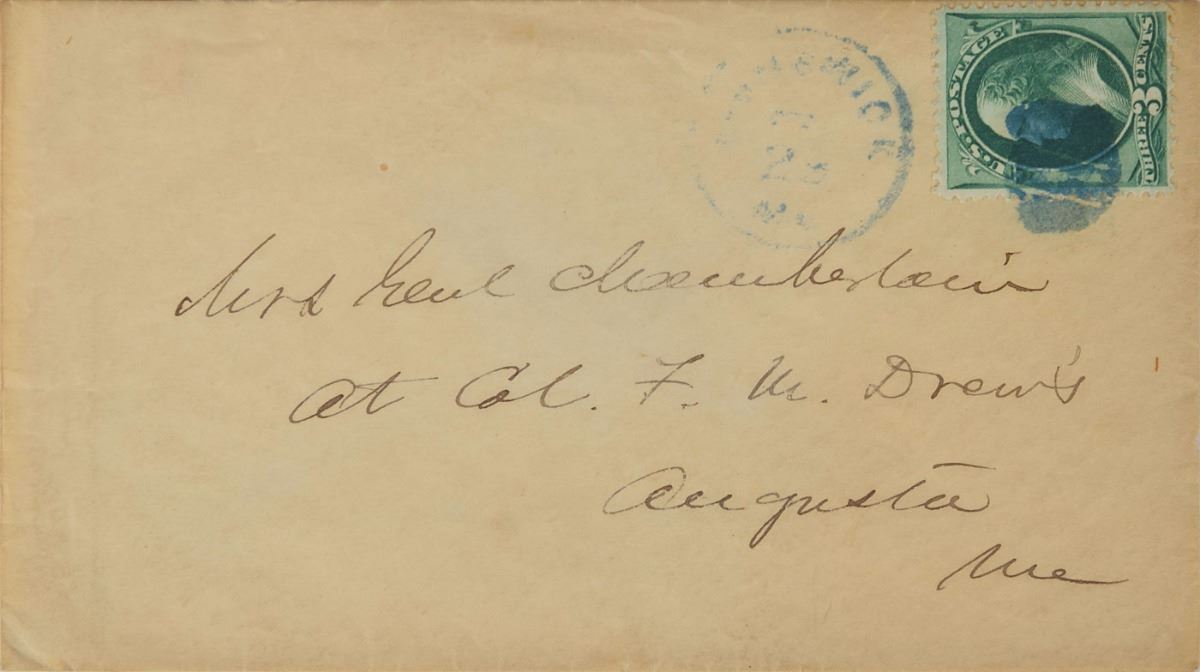 U.S. POSTAGE
THREE 3 CENTS
Mrs Genl Chamberlain
at Col. F. M. Drew's
Augusta
Me